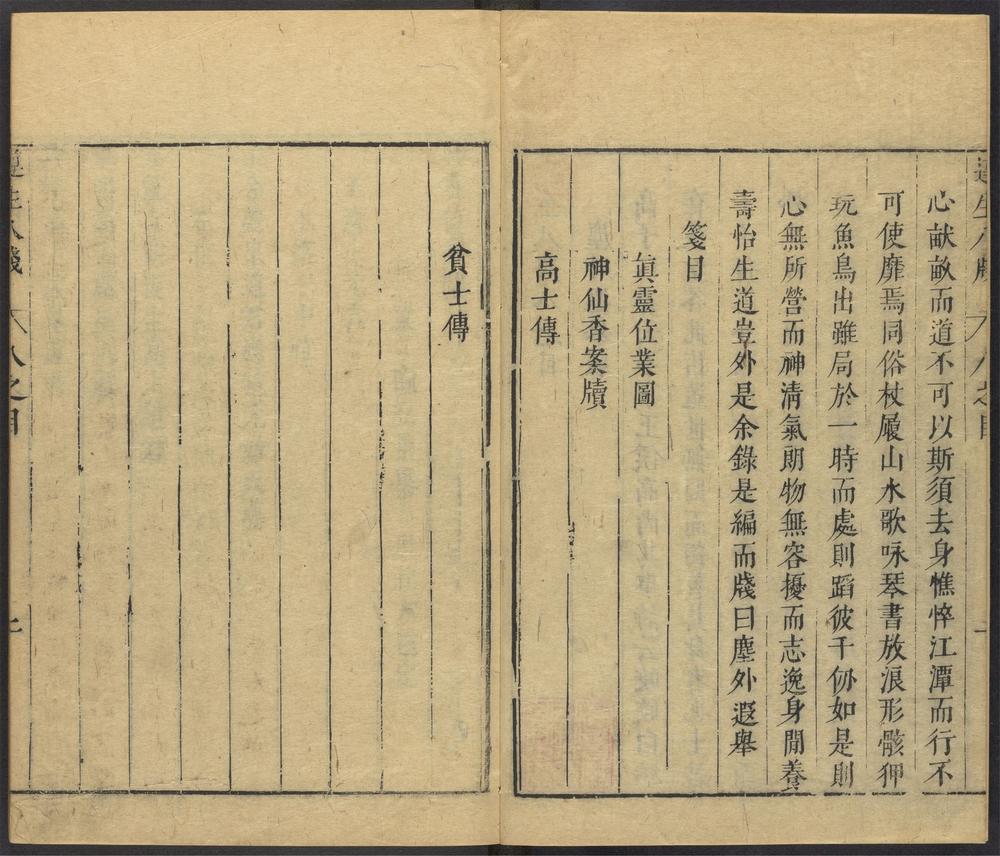 心献畝而道不可以斯須去身憔悴江潭而行不
可使靡焉同俗杖屨山水歌咏琴書放浪形骸狎
玩魚鳥出雖局於一時而處則蹈彼千仞如是則
心無所營而神清氣朗物無容擾而志逸身閒養
壽怡生道豈外是余錄是編而牋曰塵外遐舉
箋目
眞靈位業圖
神仙香案牘
高士傳
貧士傳
八之目